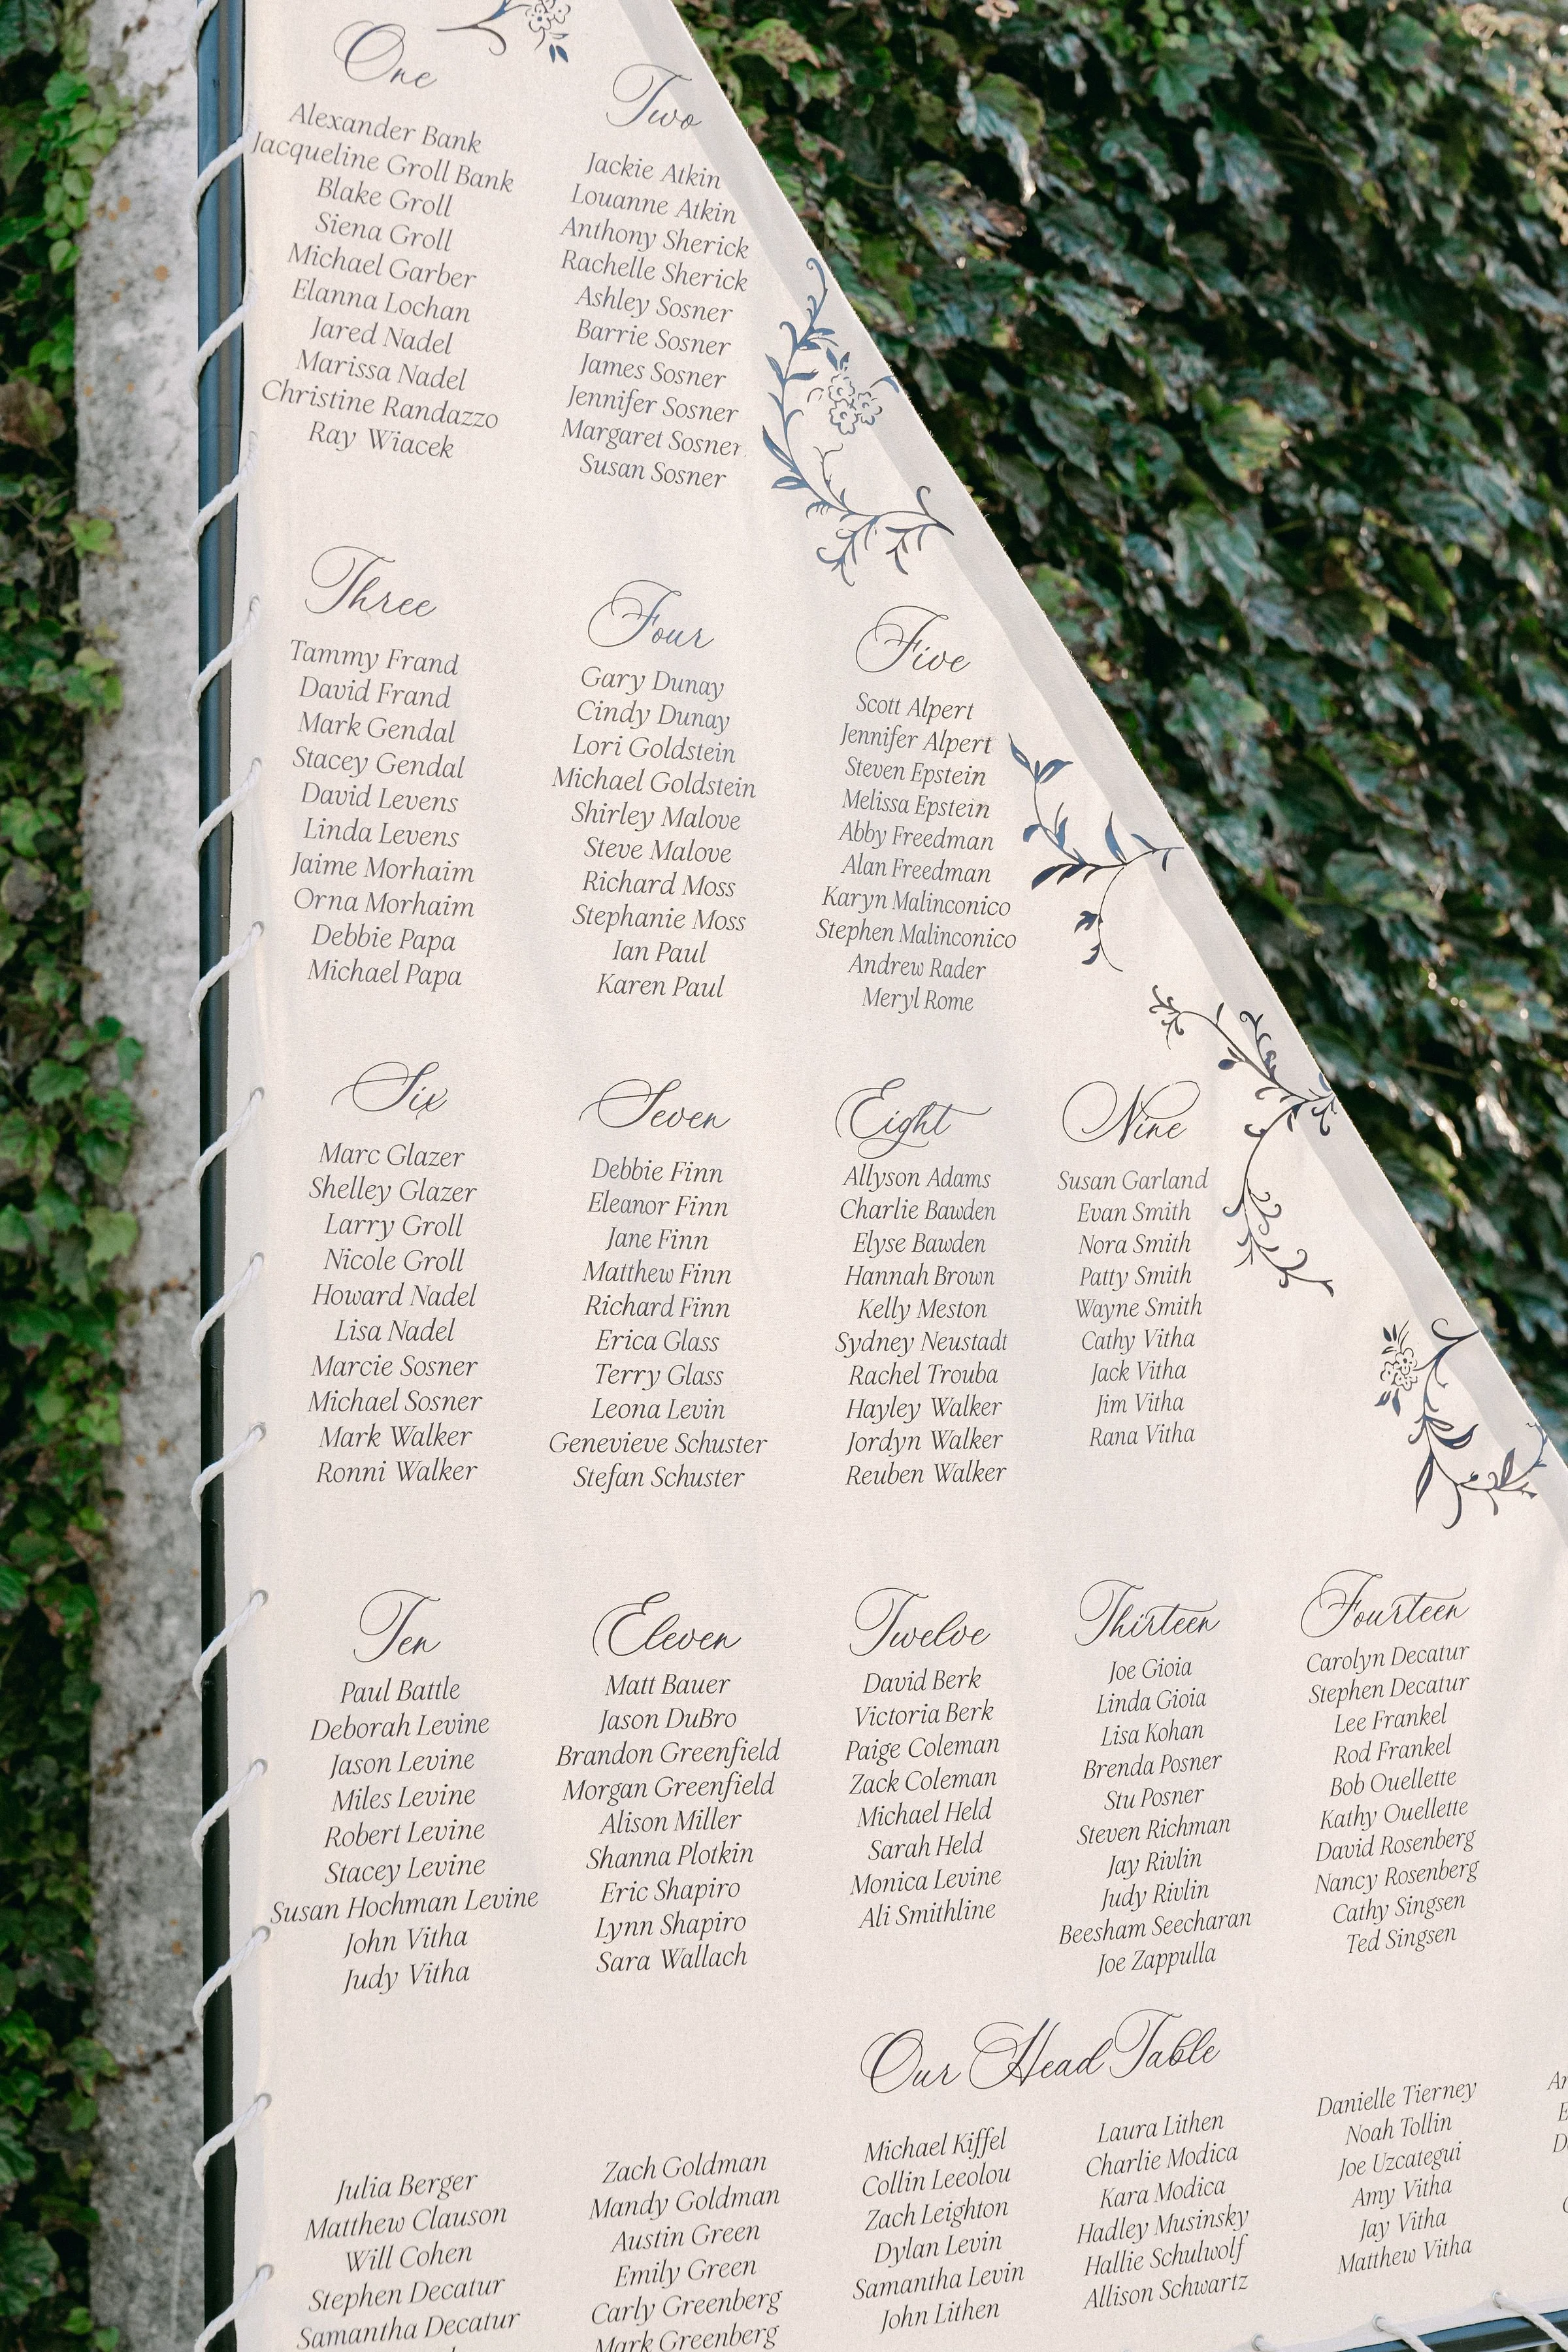 One
Alexander Bank
Jacqueline Groll Bank
Blake Groll
Siena Groll
Michael Garber
Elanna Lochan
Jared Nadel
Marissa Nadel
Christine Randazzo
Ray Wiacek
Two
Jackie Atkin
Louanne Atkin
Anthony Sherick
Rachelle Sherick
Ashley Sosner
Barrie Sosner
James Sosner
Jennifer Sosner
Margaret Sosner
Susan Sosner
Three
Tammy Frand
David Frand
Mark Gendal
Stacey Gendal
David Levens
Linda Levens
Jaime Morhaim
Orna Morhaim
Debbie Papa
Michael Papa
Four
Gary Dunay
Cindy Dunay
Lori Goldstein
Michael Goldstein
Shirley Malove
Steve Malove
Richard Moss
Stephanie Moss
Ian Paul
Karen Paul
Five
Scott Alpert
Jennifer Alpert
Steven Epstein
Melissa Epstein
Abby Freedman
Alan Freedman
Karyn Malinconico
Stephen Malinconico
Andrew Rader
Meryl Rome
Six
Marc Glazer
Shelley Glazer
Larry Groll
Nicole Groll
Howard Nadel
Lisa Nadel
Marcie Sosner
Michael Sosner
Mark Walker
Ronni Walker
Seven
Debbie Finn
Eleanor Finn
Jane Finn
Matthew Finn
Richard Finn
Erica Glass
Terry Glass
Leona Levin
Genevieve Schuster
Stefan Schuster
Eight
Allyson Adams
Charlie Bawden
Elyse Bawden
Hannah Brown
Kelly Meston
Sydney Neustadt
Rachel Trouba
Hayley Walker
Jordyn Walker
Reuben Walker
Nine
Susan Garland
Evan Smith
Nora Smith
Patty Smith
Wayne Smith
Cathy Vitha
Jack Vitha
Jim Vitha
Rana Vitha
Ten
Paul Battle
Deborah Levine
Jason Levine
Miles Levine
Robert Levine
Stacey Levine
Susan Hochman Levine
John Vitha
Judy Vitha
Eleven
Matt Bauer
Jason DuBro
Brandon Greenfield
Morgan Greenfield
Alison Miller
Shanna Plotkin
Eric Shapiro
Lynn Shapiro
Sara Wallach
Twelve
David Berk
Victoria Berk
Paige Coleman
Zack Coleman
Michael Held
Sarah Held
Monica Levine
Ali Smithline
Thirteen
Joe Gioia
Linda Gioia
Lisa Kohan
Brenda Posner
Stu Posner
Steven Richman
Jay Rivlin
Judy Rivlin
Beesham Seecharan
Joe Zappulla
Fourteen
Carolyn Decatur
Stephen Decatur
Lee Frankel
Rod Frankel
Bob Ouellette
Kathy Ouellette
David Rosenberg
Nancy Rosenberg
Cathy Singsen
Ted Singsen
Our Head Table
Julia Berger
Matthew Clauson
Will Cohen
Stephen Decatur
Samantha Decatur
Zach Goldman
Mandy Goldman
Austin Green
Emily Green
Carly Greenberg
Mark Greenberg
Michael Kiffel
Collin Leeolou
Zach Leighton
Dylan Levin
Samantha Levin
John Lithen
Laura Lithen
Charlie Modica
Kara Modica
Hadley Musinsky
Hallie Schulwolf
Allison Schwartz
Danielle Tierney
Noah Tollin
Joe Uzcategui
Amy Vitha
Jay Vitha
Matthew Vitha